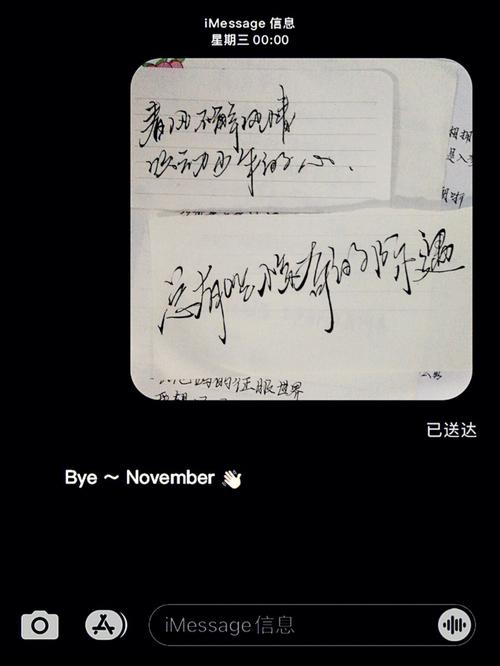 iMessage 信息
星期三 00:00
春风不解风情
吹动少年的心.
总有些惊奇的际遇
的征服世界
已送达
Bye ～ November 👋🏻
iMessage信息